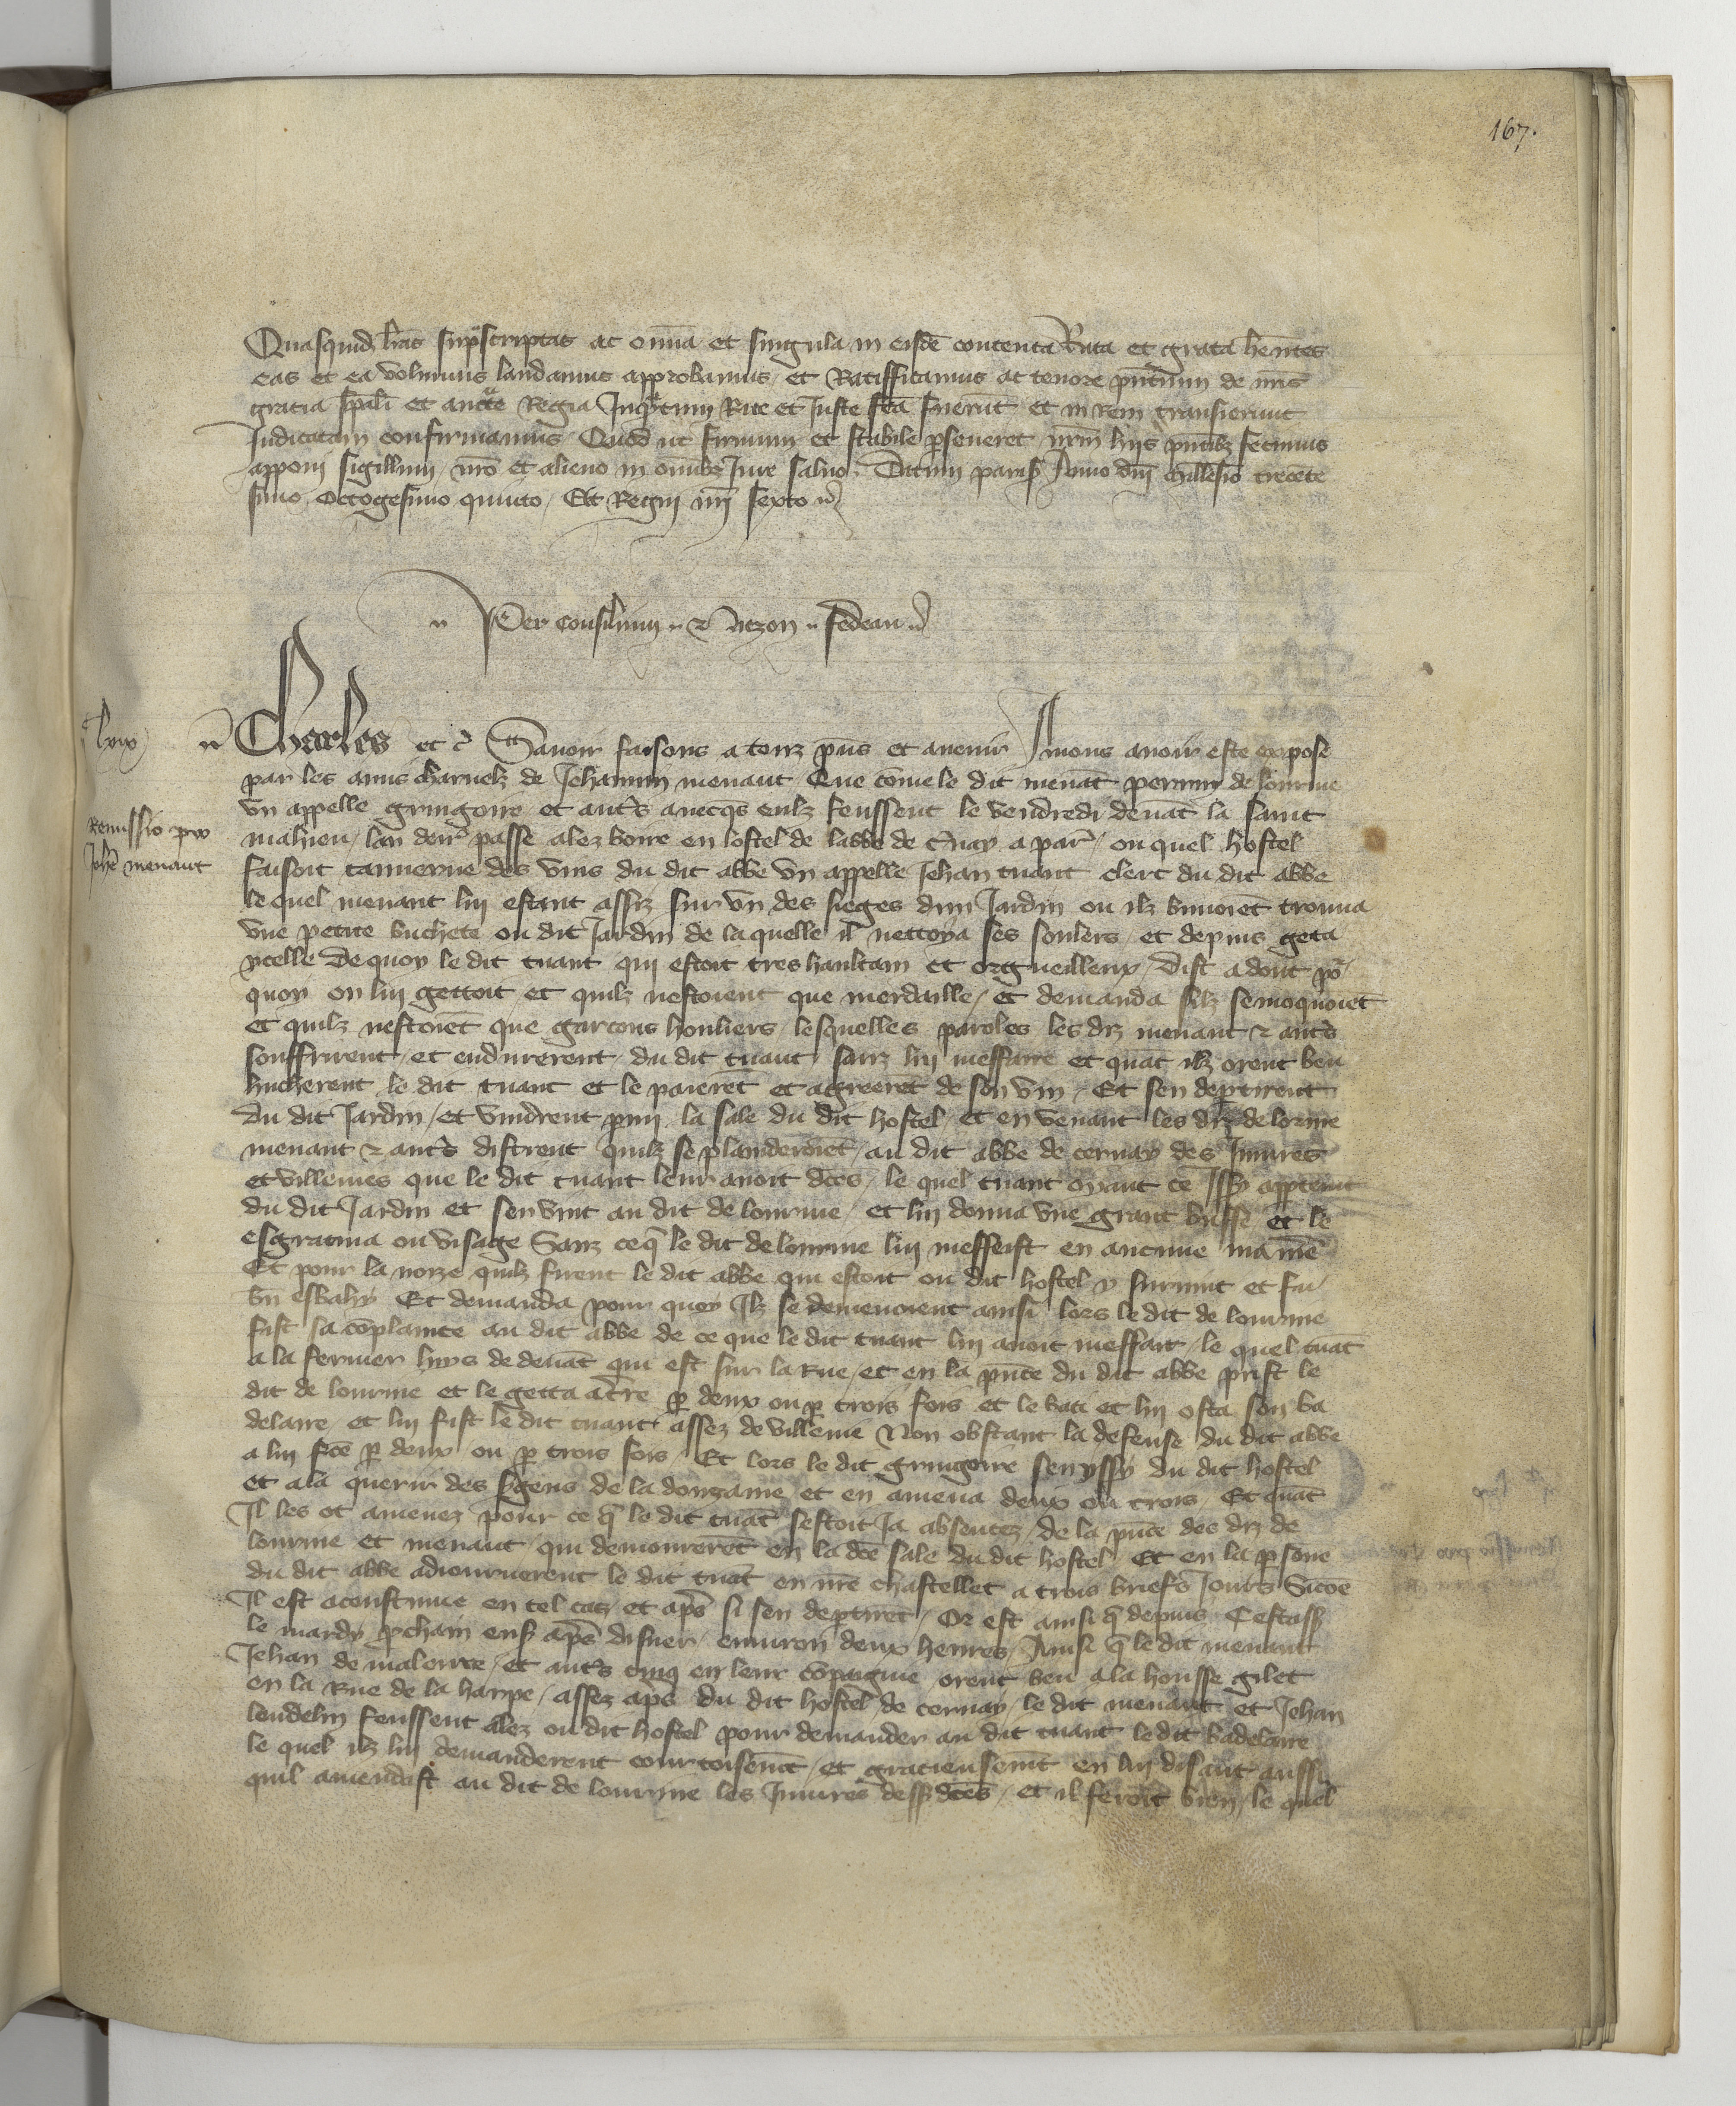 167.
Quasquid lras sup͛scriptas ac om̄ia et singula in eisdē contenta Rata et grata hēntes
eas et ea volumus laudamus approbamus et Ratifficamus ac tenore pn̄tium de nr̄is
gratia sp̄ali et auctte Regia Inq̄ntum Rite et Juste fc̄a fuerūt et in Rem transierunt
Judicatam confirmamus Quod ut firmum et stabile ꝑseveret nrm̄ hiis pn̄tibꝫ fecimus
apponi sigillum nr̄o et alieno in om̄ibꝫ Jure salvo Datum parisꝭ Anno dnī millesīo trecēte
simo octogesimo quinto Et Regni nrī sexto
Per consilium ꝛ vezon fedeau
lxix
Charles et c̄ Savoir faisons a touz pn̄s et avenir A nous avoir este expose
par les amis charnelz de Jehannin menaut Que cōme le dit menāt perrin de lourme
un appelle gringoire et aut̄s avecqs eulz feussent le vendredi devāt la saint
Remissio pro
Johē menaut
mahieu lan derr̄ passe alez boire en lostel de labbe de c̄nay a par̄ ou quel hostel
faisoit tavuerne des vins du dit abbe un appelle Jehan tuaut clerc du dit abbe
le quel menaut lui estant assiz sur un des sieges dun Jardin ou ilz buvoiēt trouva
une petite buchete ou dit Jardin de laquelle il nettoya ses soulers et depuis geta
ycelle de quoy le dit tuaut qui estoit tres haultain et orgueilleux dist a dont po͛
quoy on lui gettoit et quilz nestoient que merdaille et demanda silz se moquoiēt
et quilz nestoiēt que garcons houliers lesquelles paroles les diz menaut ꝛ aut̄s
souffrirent et endurerent du dit tuaut sanz lui meffaire et quāt ilz orent beu
hucherent le dit tuaut et le paierēt et agreerēt de son vin Et sen deꝑtirent
du dit Jardin et vindrent ꝑmi la sale du dit hostel et en venant les diz de lorme
menaut ꝛ aut̄s distrent quilz se plainderoiēt au dit abbe de cernay des Injures
et villenies que le dit tuaut leur avoit dc̄es le quel tuaut oyant ce Issy
du dit Jardin et sen vint au dit de lourme et lui donna une grant buffe et le
esgratina ou visage Sanz ce q̄ le dit de lourme lui meffeist en aucune maniē
Et pour la noize quilz firent le dit abbe qui estoit ou dit hostel y survint et fu
bn̄ esbahy Et demanda pour quoy Ilz se demenoient ainsi lors le dit de lourme
fist sa cōplainte au dit abbe de ce que le dit tuaut lui avoit meffait le quel tuāt
a la fermer huys de devāt qui est sur la Rue et en la pn̄ce du dit abbe prist le
dit de lourme et le getta a t̄re ꝑ deux ou ꝑ trois fois et le bati et lui osta son ba
delaire et lui fist le dit tuaut assez de villenie Non obstant la defense du dit abbe
a lui fc̄e ꝑ deux ou ꝑ trois fois Et lors le dit gringoire sen yssy du dit hostel
et ala querir des s̄gens de la douzaine et en amena deux ou trois Et quāt
Il les ot amenez pour ce q̄ le dit tuāt sestoit Ja absentez de la pn̄ce des diz de
lourme et menaut qui demourerēt en la dc̄e sale du dit hostel Et en la ꝑsone
du dit abbe adiournerent le dit tuāt en nr̄e chastellet a trois briefs Jours Sicōe
Il est acoustume en tel cas et ap̄s si sen deꝑtirēt Or est ainsi q̄ depuis Cestassꝭ
le mardy ꝓchain ensꝭ ap̄s disner environ deux heures Ainsi q̄ le dit menaut
Jehan de malence et aut̄s cinq en leur cōpaignie orent beu a la housse gilet
en la Rue de la harpe assez aps̄ du dit hostel de cernay le dit menaut et Jehan
loudelin feussent alez ou dit hostel pour demander au dit tuaut le dit badelaire
le quel ilz lui demanderent courtoisem̄t et gracieusem̄t en lui disant aussi
quil amendast au dit de lourme les Injures dessꝭ dc̄es et il feroit bien le quel